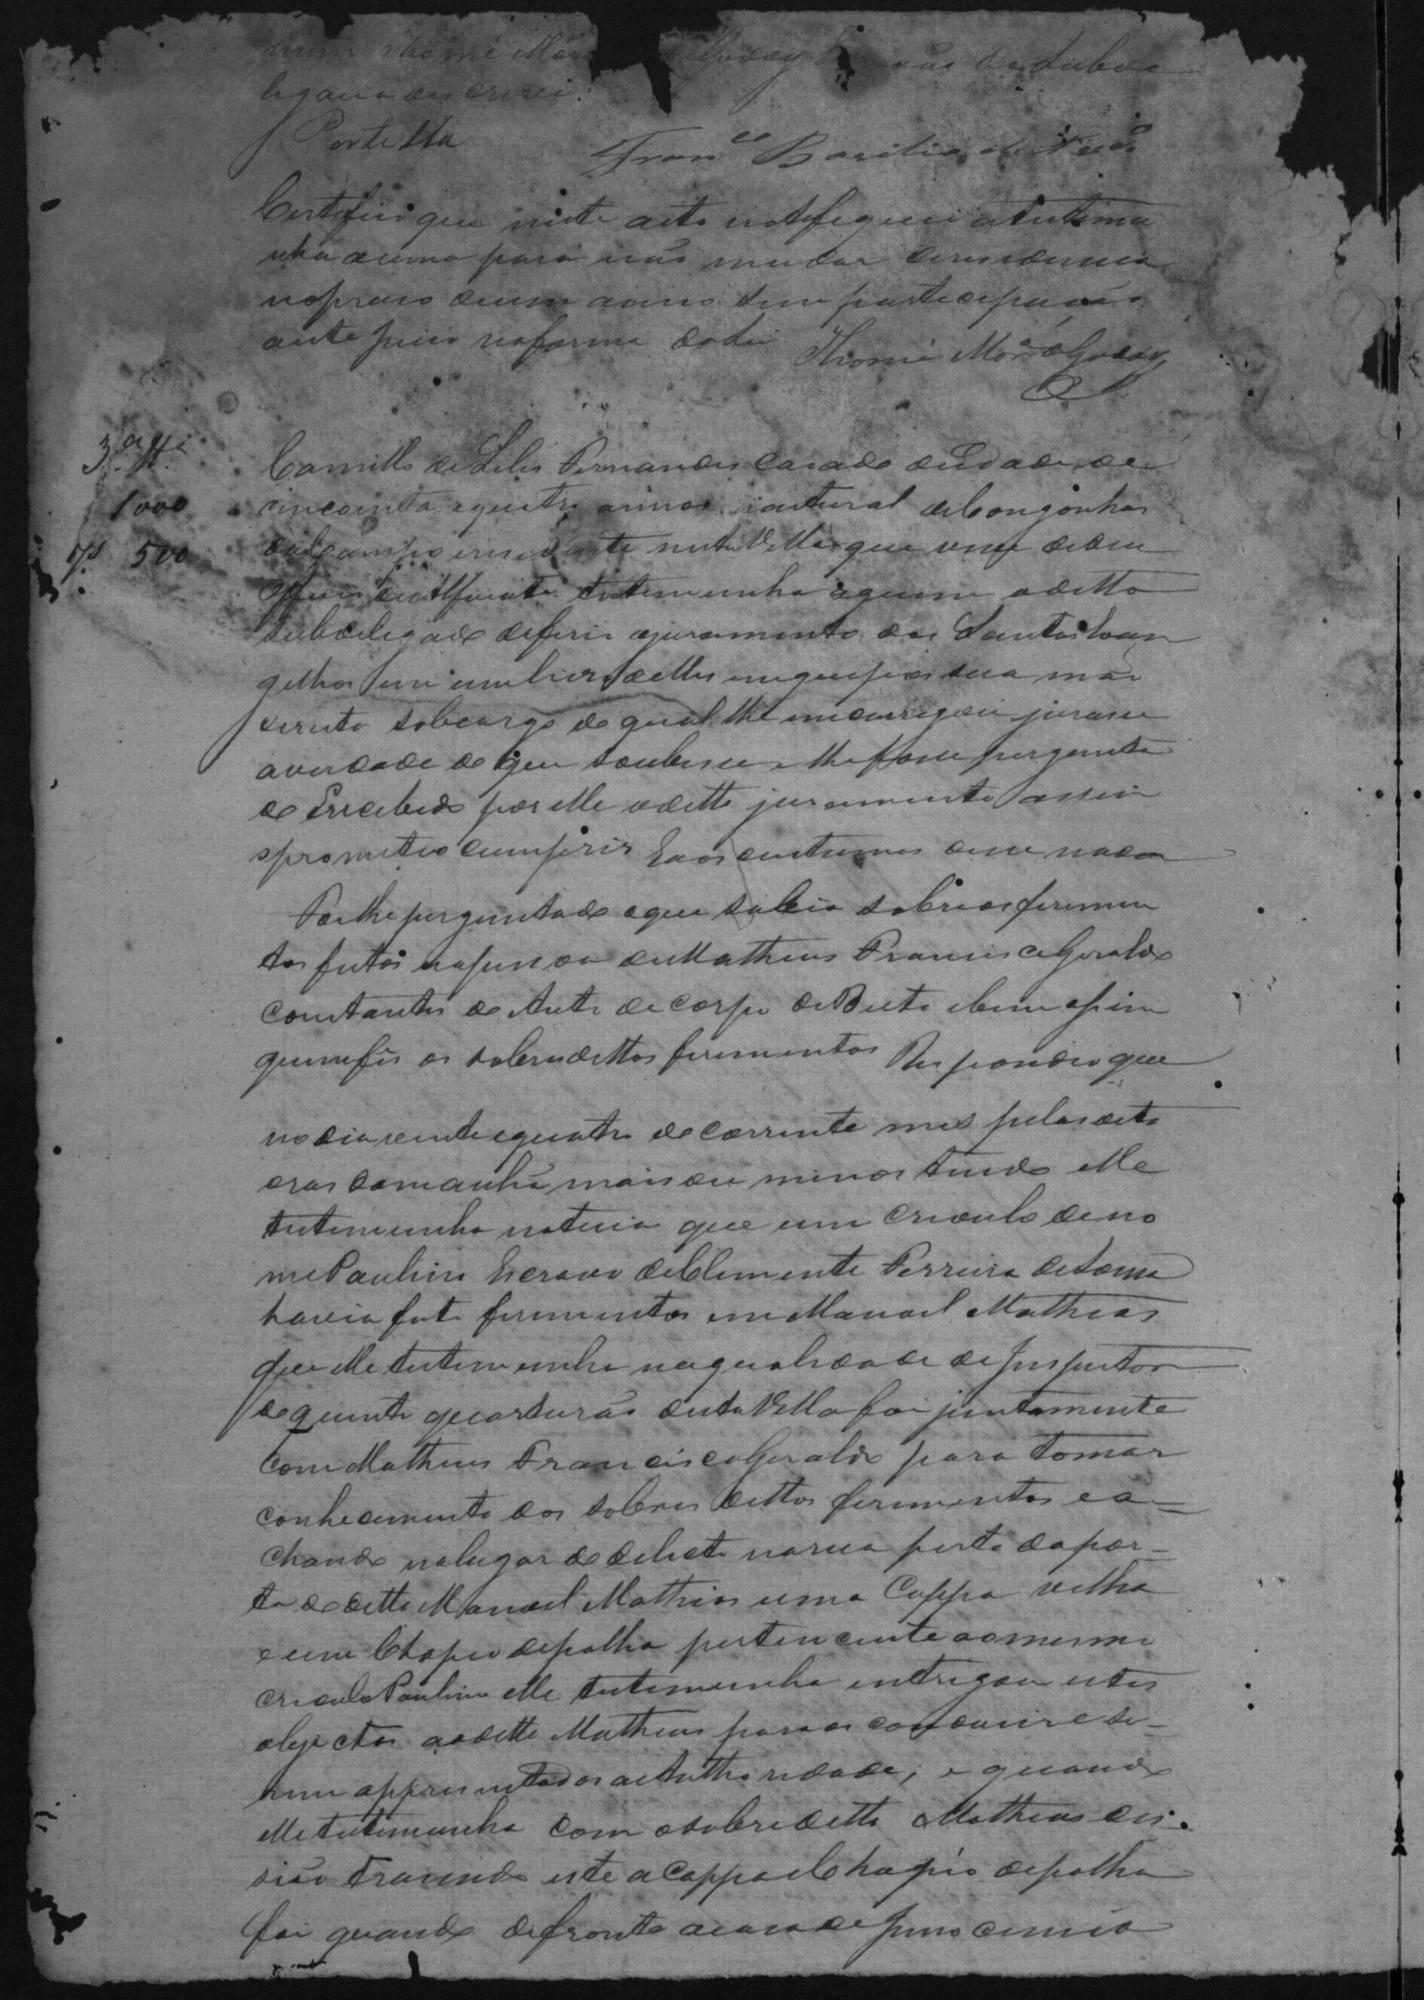 Thomé Mor Godoy Escrivão da subde
legacia escrevi.
Portella
Fran.co Basilio de
Certifico que neste acto notifiquei a testemu
nha acima para não mudar de residencia
no praso de um anno sem participação
a este juiso na forma da lei Thomé Mor.a de Godoy
3.a Tt.a
1000
500
Camillo de Lelis Fernandes casado de idade de
cincoenta e quatro annos natural de Congonhas
do Campo e residente nesta Villa que vive de seu
officio de Alfaiate testemunha a quem o ditto
subdelegado deferio o juramento dos Santos Evan
gelhos em um livro delles em que pos sua mão
direita sob cargo do qual lhe encarregou jurasse
a verdade do que soubesse e lhe fosse pergunta
do E recebido por elle o ditto juramento assim
o prometteo cumprir E aos custumes disse nada
Foi lhe perguntado o que sabia sobre os ferimen
tos feitos na pessoa de Matheus Francisco Geraldo
constantes do Auto de corpo de Delicto e bem assim
quem fes os sobredittos ferimentos Respondeo que
no dia vinte e quatro do corrente mes pelas oito
oras da manhã mais ou menos tendo elle
testemunha noticia que um creoulo de no
me Paulino Escravo de Clemente Ferreira de Souza
havia feito ferimentos em Manoel Mathias
que elle testemunha na qualidade de Inspector
do quinto quarteirão desta Villa foi juntamente
com Matheus Francisco Geraldo para tomar
conhecimento dos sobre dittos ferimentos e a
chando no lugar do delicto na rua perto da por-
ta do ditto Manoel Mathias uma Cappa velha
e um Chapeo de palha pertencente ao mesmo
creoulo Paulino elle testemunha entregou estes
objectos ao ditto Matheus para os condusir e se-
rem appresentados a Authoridade; e quando
elle testemunha com o sobreditto Matheus des-
sião trasendo este a Cappa e Chapéo de palha
foi quando defronte a casa de Innocencio